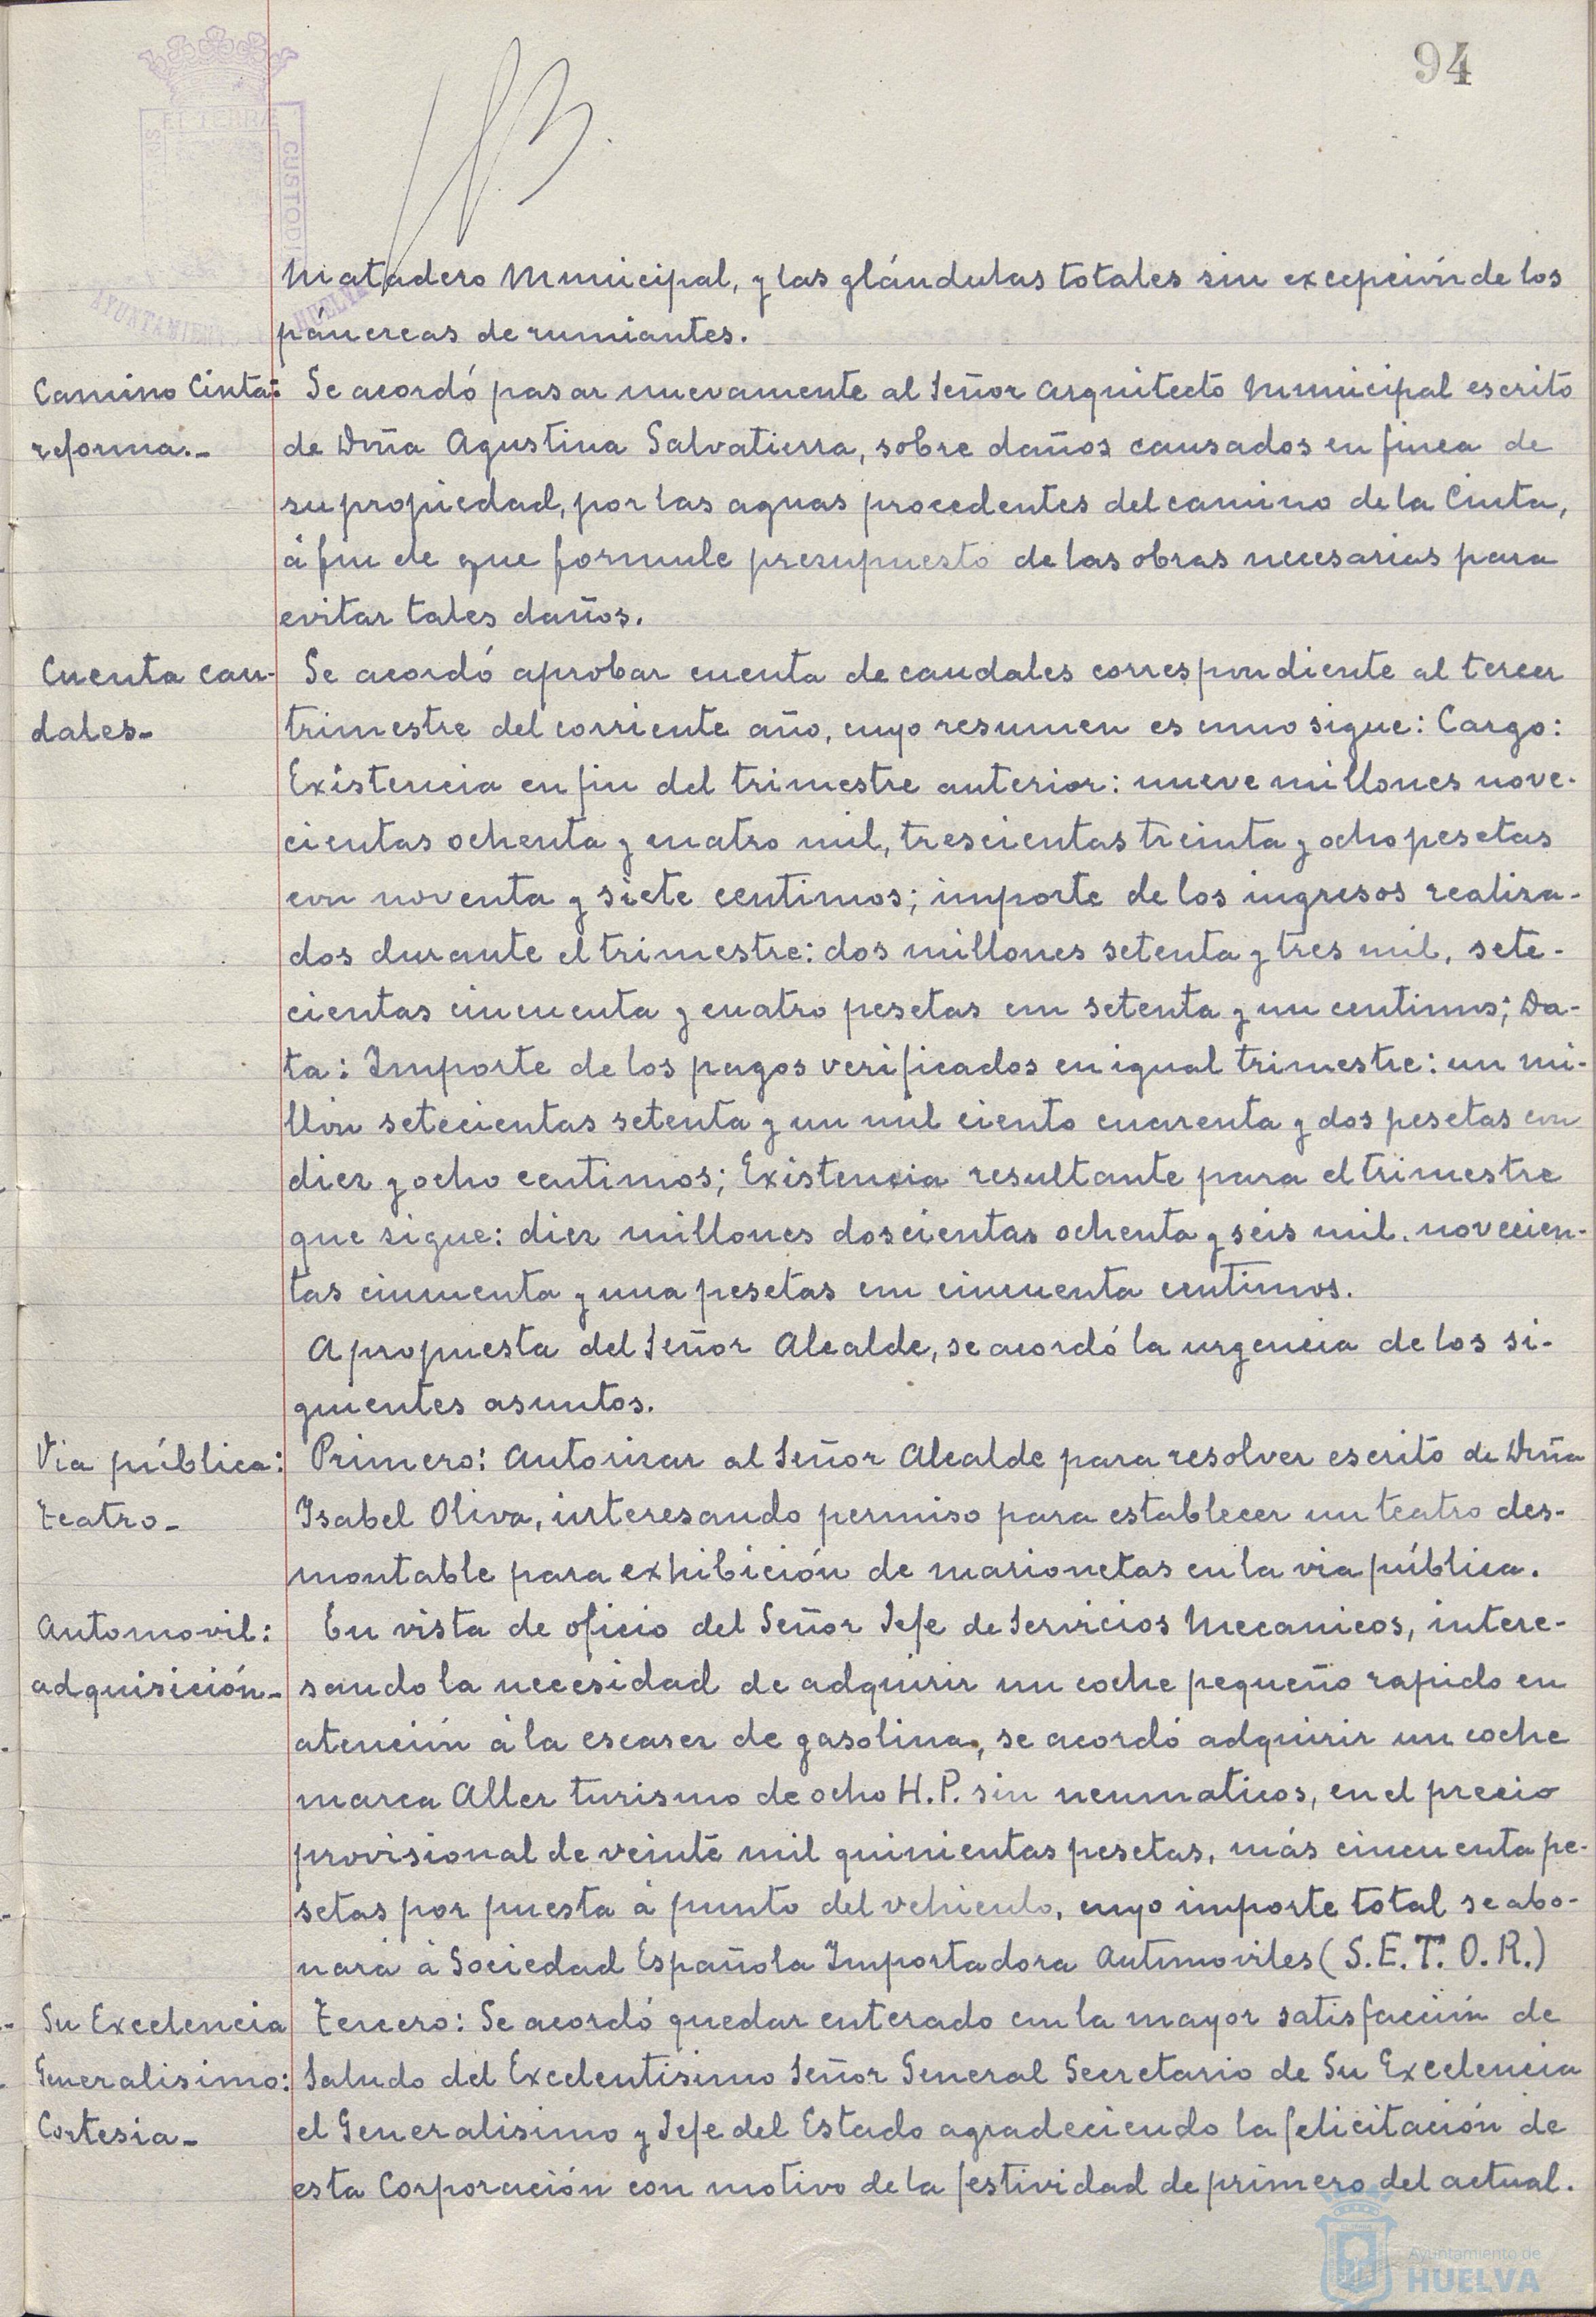 94
EI TERRÆ
CUSTODI
AYUNTAMIENTO
HUELVA
Matadero Municipal, y las glándulas totales sin excepción de los
páncreas de rumiantes.
Camino Cinta: Se acordó pasar nuevamente al Señor Arquitecto Municipal escrito
reforma.- de Dña Agustina Salvatierra, sobre daños causados en finca de
su propiedad, por las aguas procedentes del camino de la Cinta,
á fin de que formule presupuesto de las obras necesarias para
evitar tales daños.
Cuenta cau- Se acordó aprobar cuenta de caudales correspondiente al tercer
dales- trimestre del corriente año, cuyo resumen es como sigue: Cargo:
Existencia en fin del trimestre anterior: nueve millones nove-
cientas ochenta y cuatro mil, trescientas treinta y ocho pesetas
con noventa y siete centimos; importe de los ingresos realiza-
dos durante el trimestre: dos millones setenta y tres mil, sete-
cientas cincuenta y cuatro pesetas con setenta y un centimos; Da-
ta: Importe de los pagos verificados en igual trimestre: un mi-
llón setecientas setenta y un mil ciento cuarenta y dos pesetas con
diez y ocho centimos; Existencia resultante para el trimestre
que sigue: diez millones doscientas ochenta y seis mil. novecien-
tas cincuenta y una pesetas con cincuenta centimos.
A propuesta del Señor Alcalde, se acordó la urgencia de los si-
guientes asuntos.
Via pública: Primero: Autorizar al Señor Alcalde para resolver escrito de Dña
teatro- Isabel Oliva, interesando permiso para establecer un teatro des-
montable para exhibición de marionetas en la via pública.
Automovil: En vista de oficio del Señor Jefe de Servicios Mecanicos, intere-
adquisición- sando la necesidad de adquirir un coche pequeño rapido en
atención á la escasez de gasolina, se acordó adquirir un coche
marca Aller turismo de ocho H.P. sin neumaticos, en el precio
provisional de veinte mil quinientas pesetas, más cincuenta pe-
setas por puesta á punto del vehiculo, cuyo importe total se abo-
nará á Sociedad Española Importadora Automoviles (S.E.T.O.R.)
Su Excelencia Tercero: Se acordó quedar enterado con la mayor satisfacción de
Generalisimo: Saludo del Excelentisimo Señor General Secretario de Su Excelencia
Cortesia- el Generalisimo y Jefe del Estado agradeciendo la felicitación de
esta Corporación con motivo de la festividad de primero del actual.
Ayuntamiento de
HUELVA